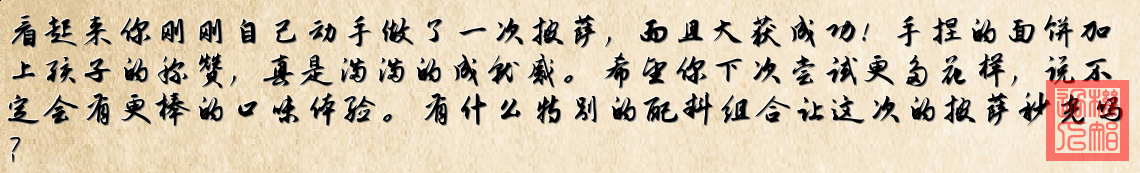 看起来你刚刚自己动手做了一次披萨，而且大获成功！手捏的面饼加
上孩子的称赞，真是满满的成就感。希望你下次尝试更多花样，说不
定会有更棒的口味体验。有什么特别的配料组合让这次的披萨秒光吗
？